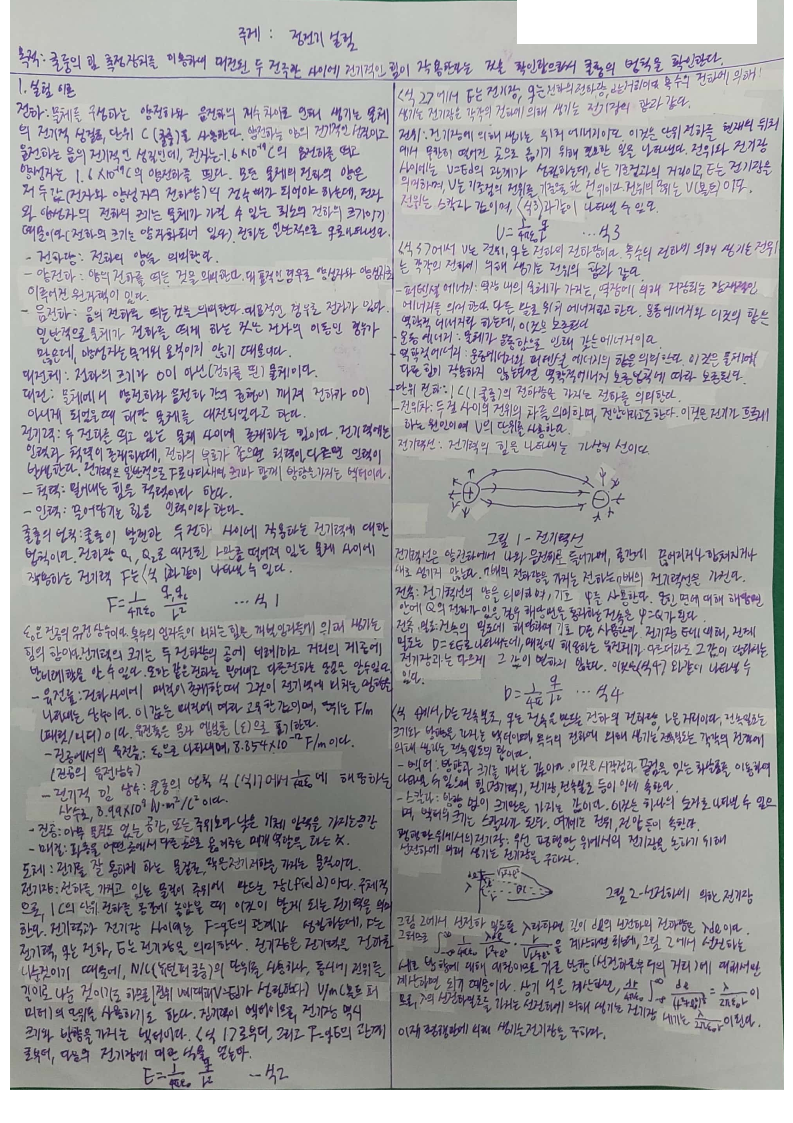 주제 : 정전기 실험
목적 : 쿨롱의 힘 측정장치를 이용하여 대전된 두 전극판 사이에 전기적인 힘이 작용한다는 것을 확인함으로써 쿨롱의 법칙을 확인한다.
1. 실험 이론
전하: 물체를 구성하는 양전하와 음전하의 차이로 인해 생기는 물체
의 전기적 성질로, 단위 C(쿨롱)을 사용한다. 양전하는 양의 전기적인 성질이고
음전하는 음의 전기적인 성질인데, 전자는 -1.6×10⁻¹⁹C의 음전하를 띠고
양성자는 1.6×10⁻¹⁹C의 양전하를 띤다. 모든 물체의 전하의 양은
이 값(전자와 양성자의 전하량)의 정수배가 되어야 하는데, 전자
와 양성자의 전하의 크기는 물체가 가질 수 있는 최소의 전하의 크기이기
때문이다(전하의 크기는 양자화되어 있다). 전하는 일반적으로 q로 나타낸다.
- 전하량: 전하의 양을 의미한다.
- 양전하: 양의 전하를 띠는 것을 의미한다. 대표적인 경우로 양성자와 양성자로
이루어진 원자핵이 있다.
- 음전하: 음의 전하를 띠는 것을 의미한다. 대표적인 경우로 전자가 있다.
일반적으로 물체가 전하를 띠게 하는 것은 전자의 이동인 경우가
많은데, 양성자는 무거워 움직이지 않기 때문이다.
대전체: 전하의 크기가 0이 아닌(전하를 띤) 물체이다.
대전: 물체에서 양전하와 음전하 간의 균형이 깨져 전하가 0이
아니게 되었을 때 해당 물체를 대전되었다고 한다.
전기력: 두 전하를 띠고 있는 물체 사이에 존재하는 힘이다. 전기력에는
인력과 척력이 존재하는데 전하의 부호가 같으면 척력이 다르면 인력이
발생한다. 전기력은 일반적으로 F로 나타내며 크기와 함께 방향을 가지는 벡터이다.
- 척력: 밀어내는 힘을 척력이라 한다.
- 인력: 끌어당기는 힘을 인력이라 한다.
쿨롱의 법칙: 쿨롱이 발견한 두 전하 사이에 작용하는 전기력에 대한
법칙이다. 전하량 q₁, q₂로 대전된 r만큼 떨어져 있는 물체 사이에
작용하는 전기력 F는 <식 1>과 같이 나타낼 수 있다.
F = 1/4πε₀ q₁q₂/r² ... 식 1
ε₀은 진공의 유전상수이다. 복수의 입자들이 미치는 힘은 개별 입자들에 의해 생기는
힘의 합이다. 전기력의 크기는 두 전하량의 곱에 비례하고 거리의 제곱에
반비례함을 알 수 있다. 또한 같은 전하는 밀어내고 다른 전하는 당김을 알 수 있다.
- 유전율: 전하 사이에 매질이 존재할 때 그것이 전기력에 미치는 영향을
나타내는 상수이다. 이 값은 매질에 따라 고유한 값이며, 단위는 F/m
(패럿/미터)이다. 유전율은 문자 엡실론(ε)으로 표기한다.
- 진공에서의 유전율: ε₀으로 나타내며, 8.854×10⁻¹² F/m이다.
(진공의 유전상수)
- 전기적 힘 상수: 쿨롱의 법칙 식 <식 1>에서 1/4πε₀에 해당하는
상수로, 8.99×10⁹ N·m²/C²이다.
- 진공: 아무 물질도 없는 공간, 또는 주위보다 낮은 기체 압력을 가지는 공간
- 매질: 파동을 어떤 곳에서 다른 곳으로 옮겨주는 매개 역할을 하는 것.
도체: 전기를 잘 통하게 하는 물질로, 작은 전기저항을 가지는 물질이다.
전기장: 전하를 가지고 있는 물질이 주위에 만드는 장(field)이다. 구체적
으로, 1C의 단위 전하를 공중에 놓았을 때 이것이 받게 되는 전기력을 의미
한다. 전기력과 전기장 사이에는 F=qE의 관계가 성립하는데, F는
전기력, q는 전하, E는 전기장을 의미한다. 전기장은 전기력을 전하로
나눈것이기 때문에, N/C(뉴턴 퍼 쿨롱)의 단위를 사용하나, 동시에 전위를
길이로 나눈 것이기도 하므로(전위 V에 대해 V=Ed가 성립한다) V/m(볼트 퍼
미터)의 단위를 사용하기도 한다. 전기력이 벡터이므로, 전기장 역시
크기와 방향을 가지는 벡터이다. <식 1>로부터, 그리고 F=qE의 관계
로부터, 다음의 전기장에 대한 식을 얻는다.
E = 1/4πε₀ q/r² ... 식 2
<식 2>에서 E는 전기장, q는 전하의 전하량, r은 거리이며 복수의 전하에 의해
생기는 전기장은 각각의 전하에 의해 생기는 전기장의 합과 같다.
전위: 전기장에 의해 생기는 위치 에너지이다. 이것은 단위 전하를 현재의 위치
에서 무한히 떨어진 곳으로 옮기기 위해 필요한 일을 나타낸다. 전위와 전기장
사이에는 V=Ed의 관계가 성립하는데, d는 기준점과의 거리이고, E는 전기장을
의미하며, V는 기준점의 전위를 기준으로 한 전위이다. 전위의 단위는 V(볼트)이다.
전위는 스칼라 값이며, <식 3>과 같이 나타낼 수 있다.
V = 1/4πε₀ q/r ... 식 3
<식 3>에서 V는 전위, q는 전하의 전하량이다. 복수의 전하에 의해 생기는 전위
는 각각의 전하에 의해 생기는 전위의 합과 같다.
- 퍼텐셜 에너지: 역장 내의 물체가 가지는, 역장에 의해 저장되는 잠재적인
에너지를 의미한다. 다른 말로 위치 에너지라고 한다. 운동에너지와 이것의 합은
역학적 에너지라 하는데, 이것은 보존된다.
- 운동 에너지: 물체가 운동함으로 인해 갖는 에너지이다.
- 역학적 에너지: 운동에너지와 퍼텐셜 에너지의 합을 의미한다. 이것은 물체에
다른 힘이 작용하지 않는다면 역학적에너지 보존 법칙에 따라 보존된다.
- 단위 전하: 1C(1쿨롱)의 전하량을 가지는 전하를 의미한다.
- 전위차: 두 점 사이의 전위의 차를 의미하며, 전압이라고도 한다. 이것은 전기가 흐르게
하는 원인이며 V의 단위를 사용한다.
전기력선: 전기력의 힘을 나타내는 가상의 선이다.
+ -
그림 1 - 전기력선
전기력선은 양전하에서 나와 음전하로 들어가며, 중간에 끊어지거나 합쳐지거나
새로 생기지 않는다. n배의 전하량을 가지는 전하는 n배의 전기력선을 가진다.
전속: 전기력선의 양을 의미하며, 기호 Ψ를 사용한다. 닫힌 면에 대해 해당 면
안에 Q의 전하가 있을 경우 해당 면을 통과하는 전속은 Ψ=Q가 된다.
전속 밀도: 전속의 밀도에 해당하며 기호 D를 사용한다. 전기장 E에 대해, 전계
밀도는 D=εE로 나타내는데, 매질에 해당하는 유전체가 다르더라도 그 값이 달라지는
전기장과는 다르게 그 값이 변하지 않는다. 이것은 <식 4>와 같이 나타낼 수
있다.
D = 1/4π q/r² ... 식 4
<식 4>에서, D는 전속밀도, q는 전속을 만드는 전하의 전하량, r은 거리이다. 전속밀도는
크기와 방향을 가지는 벡터이며, 복수의 전하에 의해 생기는 전속밀도는 각각의 전하에
의해 생기는 전속밀도의 합이다.
- 벡터: 방향과 크기를 가지는 값이다. 이것은 시작점과 끝점을 잇는 화살표를 이용하여
나타낼 수 있으며 힘(전기력), 전기장, 전속밀도 등이 이에 속한다.
- 스칼라: 방향 없이 크기만을 가지는 값이다. 이것은 하나의 숫자로 나타낼 수 있으
며, 벡터의 크기는 스칼라가 된다. 여기에는 전위, 전압 등이 속한다.
평행판 위에서의 전기장: 우선 평행판 위에서의 전기장을 논하기 위해
선전하에 의해 생기는 전기장을 구하자.
그림 2 - 선전하에 의한 전기장
그림 2에서 선전하 밀도를 λ라 하면 길이 dl의 선전하의 전하량은 λdl이다.
그러므로 ∫ 1/4πε₀ λdl/(l²+r²) · r/√(l²+r²)을 계산하면 되는데, 그림 2에서 선전하는
세로 방향에 대해 대칭이므로 가로 방향(선전하로부터의 거리)에 대해서만
계산하면 되기 때문이다. 상기 식을 계산하면, λr/4πε₀ ∫ dl/(l²+r²)^(3/2) = λ/2πε₀r 이
므로, λ의 선전하밀도를 가지는 선전하에 의해 생기는 전기장 세기는 λ/2πε₀r이 된다.
이제 평행판에 의해 생기는 전기장을 구하자.